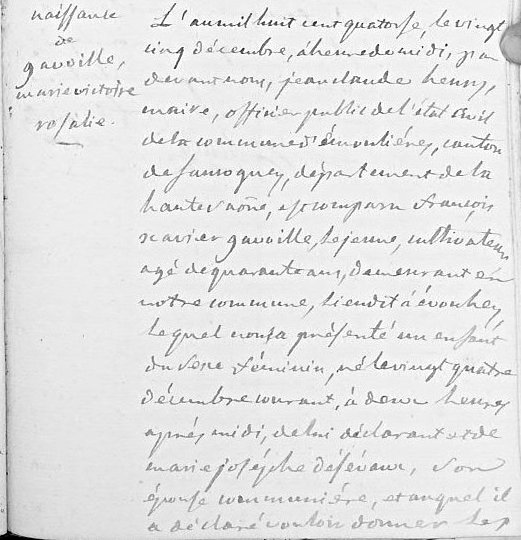 naissance
de
gavoille,
marie victoire
rosalie.
L'an mil huit cent quatorse, le vingt
cinq décembre, à heure de midi, par
devant nous, jean claude henry,
maire, officier public de l'état civil
de la commune d'émouliéres, canton
de faucogney, département de la
haute saône, est comparu françois
xavier gavoille, le jeune, cultivateur
agé de quarante ans, demeurant en
notre commune, lieudit à évouhey,
lequel nous a présenté un enfant
du sexe féminin, né le vingt quatre
décembre courant, à deux heures
aprés midi, de lui déclarant et de
marie joséphe désévaux, son
épouse communiére, et auquel il
a déclaré vouloir donner les